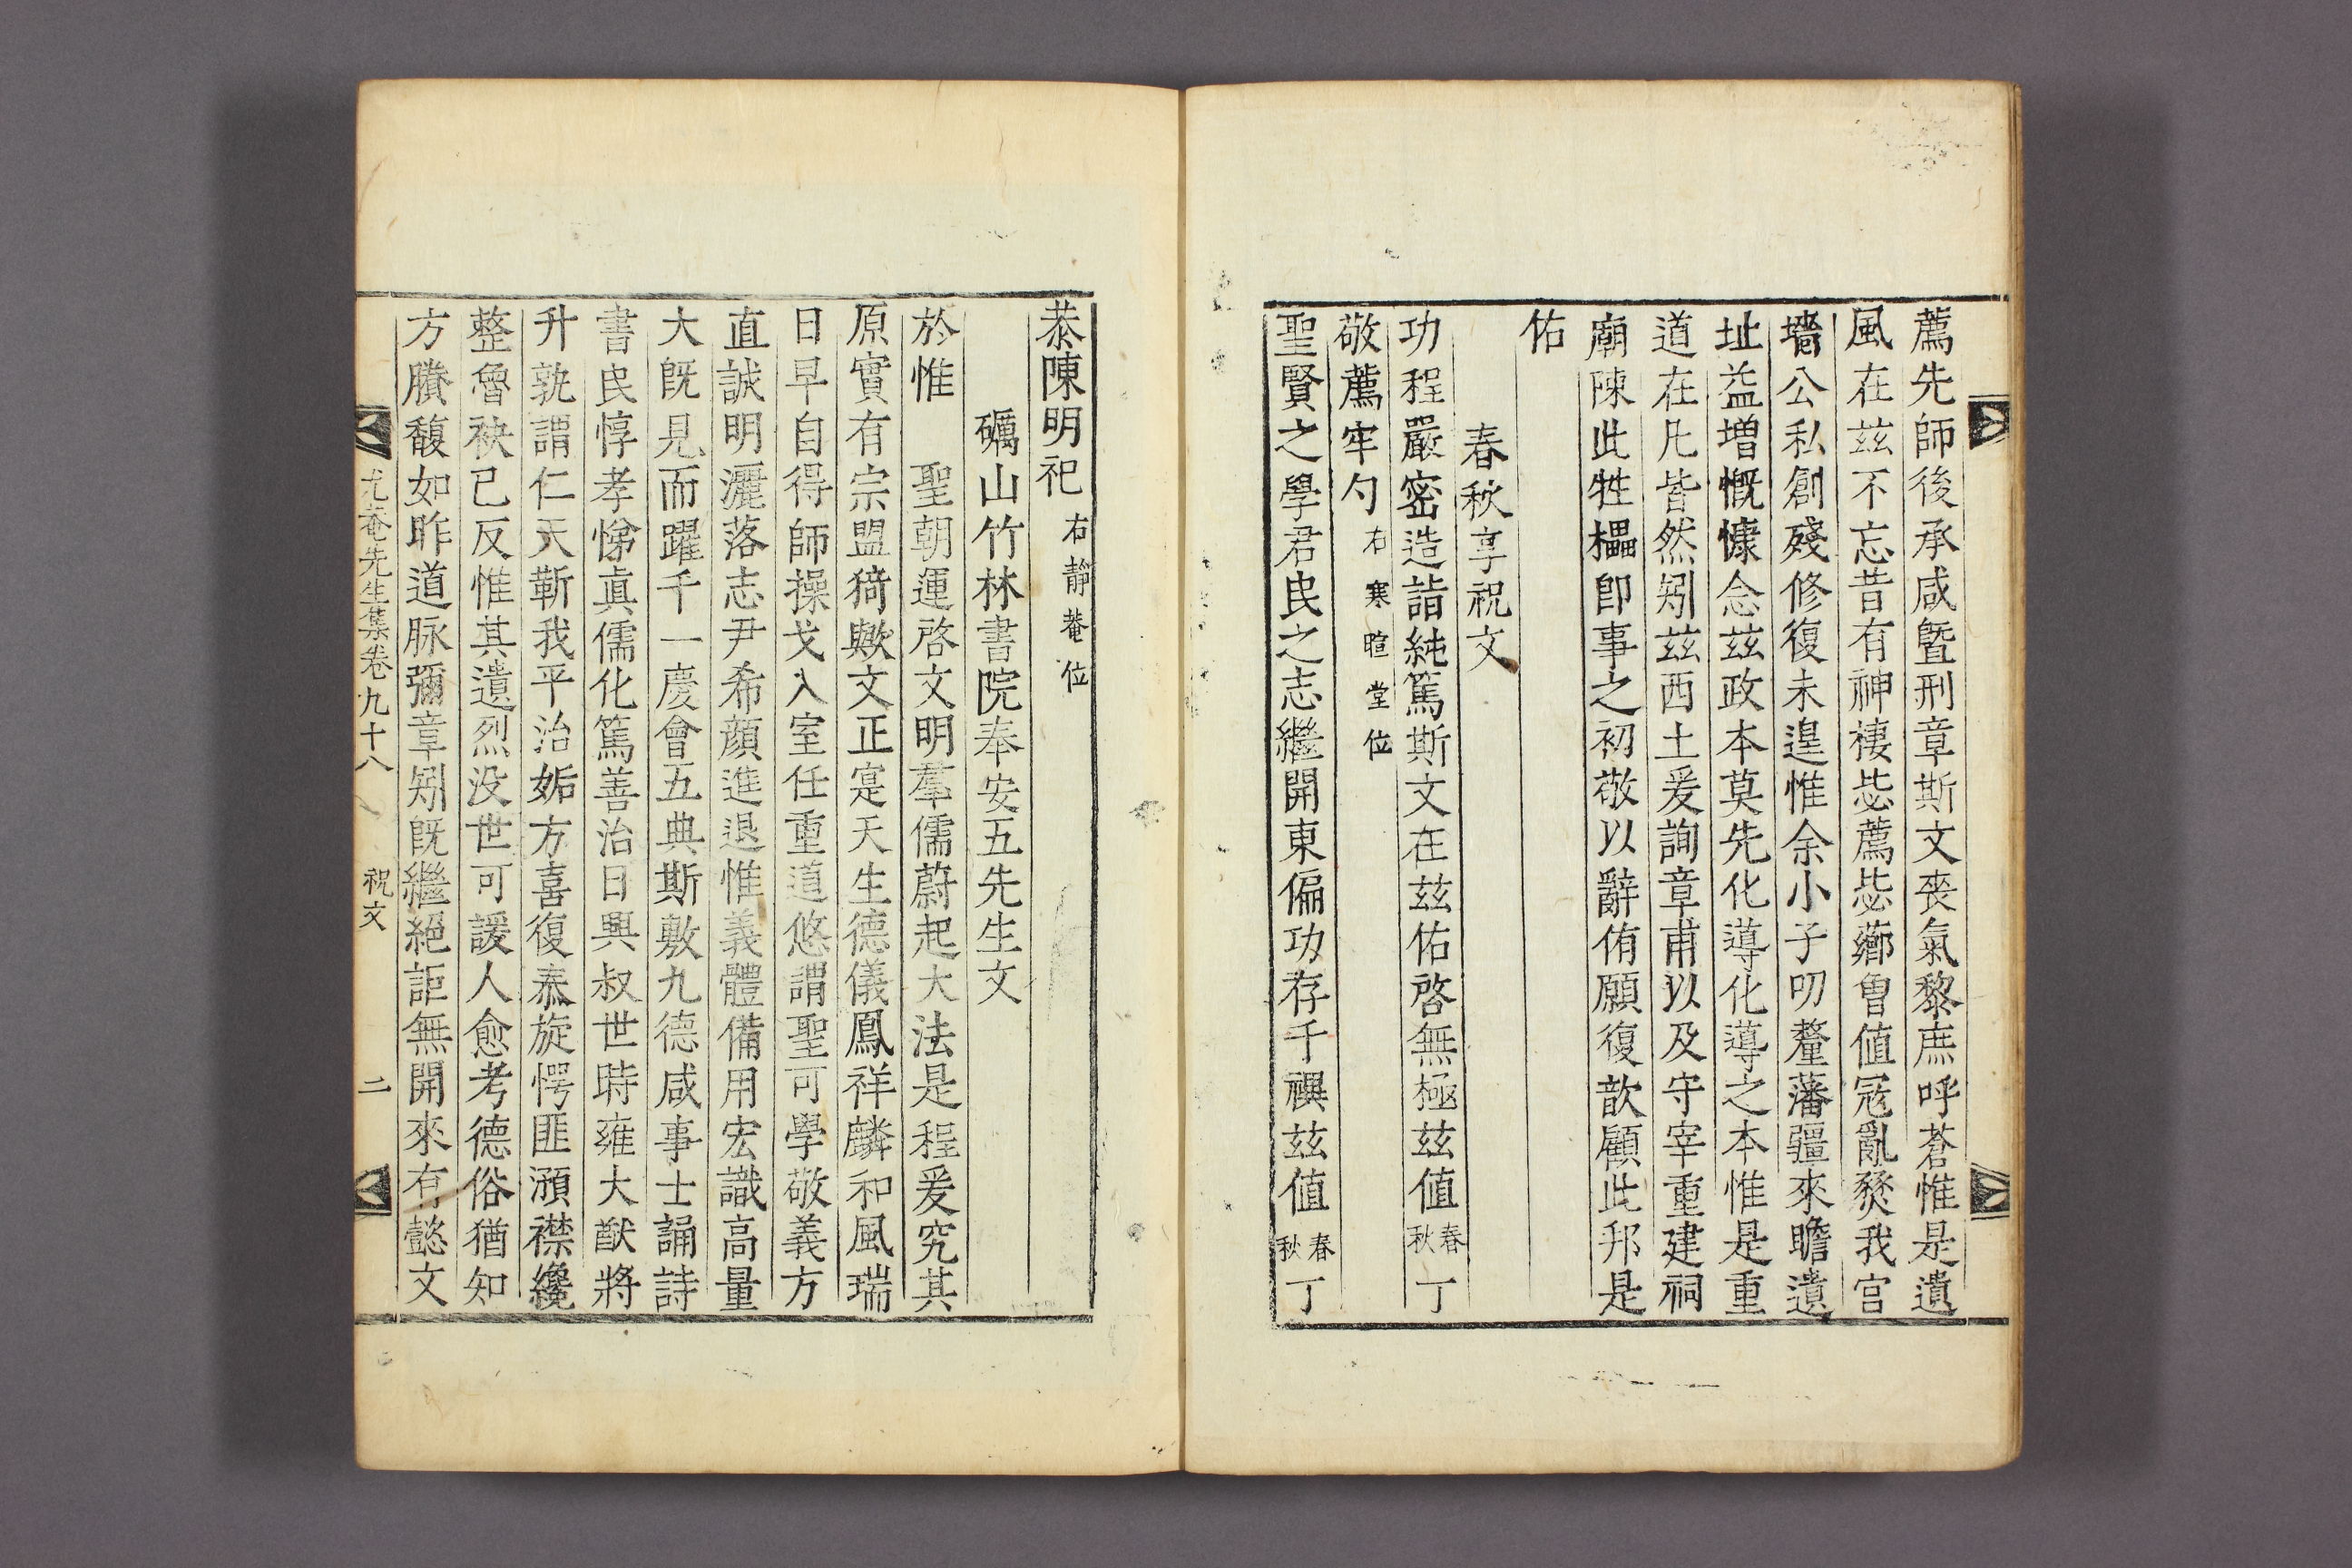 薦先師後承咸曁刑章斯文喪氣黎庶呼蒼惟是遺
風在玆不忘昔有神棲毖薦毖薌曾値冦亂燹我宫
墻公私創殘修復未遑惟余小子叨釐藩疆來瞻遺
址益增慨慷念玆政本莫先化導化導之本惟是重
道在凡皆然矧玆西土爰詢章甫以及守宰重建祠
廟陳此牲櫑卽事之初敬以辭侑願復歆顧此邦是
佑
春秋享祝文
功程嚴密造詣純篤斯文在玆佑啓無極玆値春秋丁
敬薦牢勺右寒暄堂位
聖賢之學君民之志繼開東偏功存千禩玆値春秋丁
恭陳明祀右靜菴位
礪山竹林書院奉安五先生文
於惟 聖朝運啓文明羣儒蔚起大法是程爰究其
原實有宗盟猗歟文正寔天生德儀鳳祥麟和風瑞
日早自得師操戈入室任重道悠謂聖可學敬義方
直誠明灑落志尹希顔進退惟義體備用宏識高量
大旣見而躍千一慶會五典斯敷九德咸事士誦詩
書民惇孝悌眞儒化篤善治日興叔世時雍大猷將
升孰謂仁天靳我平治姤方喜復泰旋愕匪瀕襟纔
整魯袂已反惟其遺烈没世可諼人愈考德俗猶知
方賸馥如昨道脉彌章矧旣繼絕詎無開來有懿文
尤菴先生集卷九十八 祝文 二